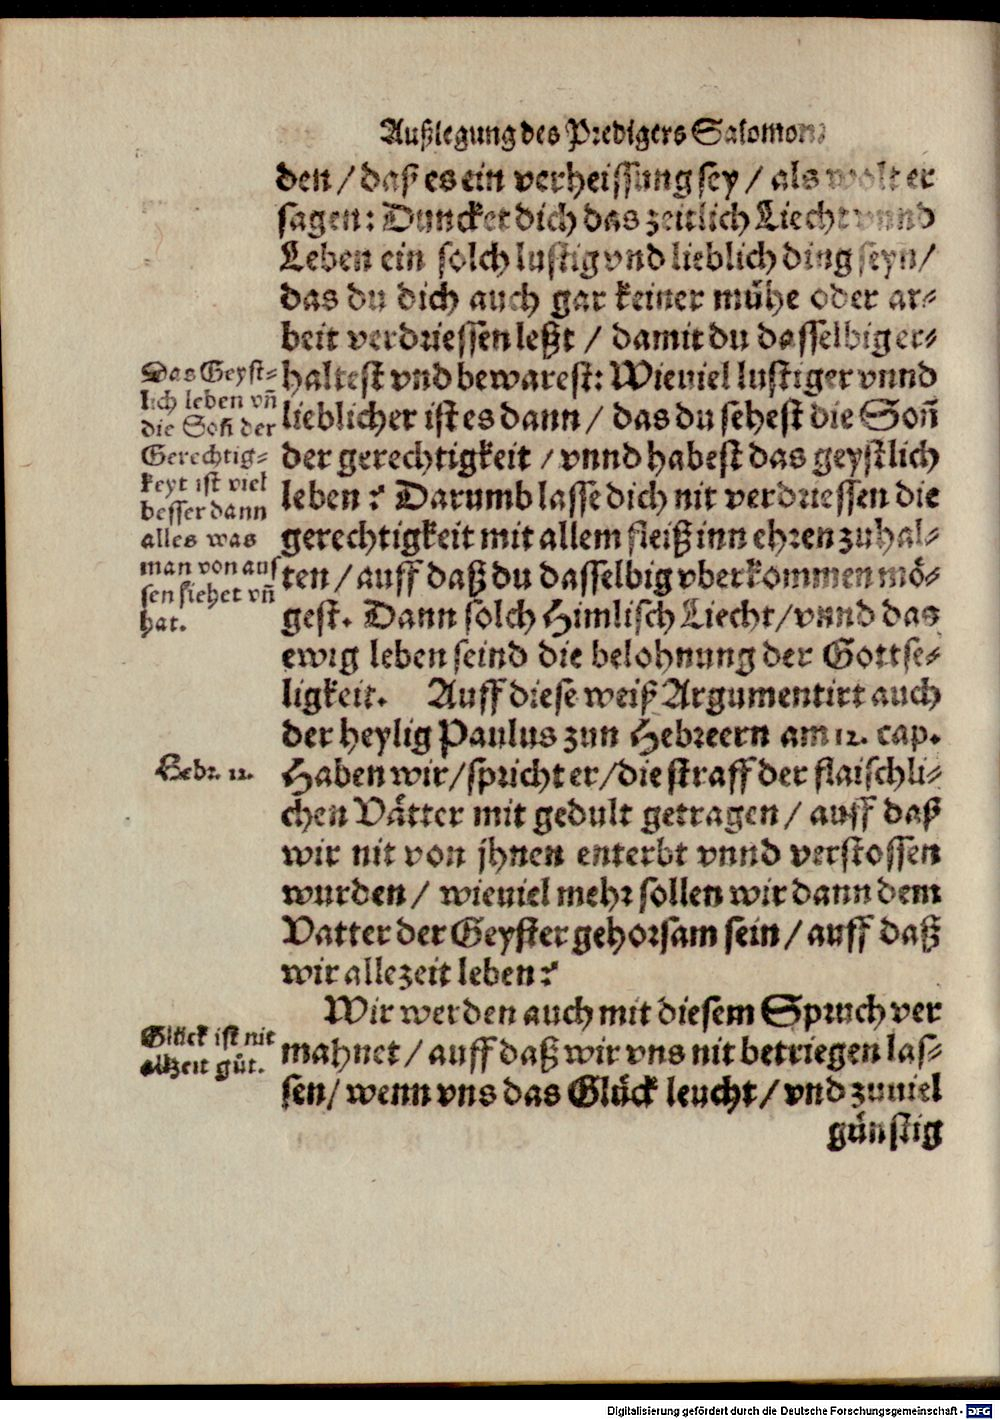 Außlegung des Predigers Salomons
den / daß es ein verheissung sey / als wolt er
sagen: Duncket dich das zeitlich Liecht vnnd
Leben ein solch lustig vnd lieblich ding seyn /
das du dich auch gar keiner mühe oder ar-
beit verdriessen leßt / damit du dasselbig er-
haltest vnd bewarest: Wieuiel lustiger vnnd
lieblicher ist es dann / das du sehest die Soñ
der gerechtigkeit / vnnd habest das geystlich
leben? Darumb lasse dich nit verdriessen die
gerechtigkeit mit allem fleiß inn ehren zuhal-
ten / auff daß du dasselbig vberkommen mö-
gest. Dann solch Himlisch Liecht / vnnd das
ewig leben seind die belohnung der Gottse-
ligkeit. Auff diese weiß Argumentirt auch
der heylig Paulus zun Hebreern am 12. cap.
Haben wir / spricht er / die straff der flaischli-
chen Vätter mit gedult getragen / auff daß
wir nit von jhnen enterbt vnnd verstossen
wurden / wieuiel mehr sollen wir dann dem
Vatter der Geyster gehorsam sein / auff daß
wir allezeit leben?
Wir werden auch mit diesem Spruch ver
mahnet / auff daß wir vns nit betriegen las-
sen / wenn vns das Glück leucht / vnd zuuiel
günstig
Das Geyst-
lich leben vñ
die Soñ der
Gerechtig-
keyt ist viel
besser dann
alles was
man von aus
sen siehet vñ
hat.
Hebr. 12.
Glück ist nit
allzeit gůt.
Digitalisierung gefördert durch die Deutsche Forschungsgemeinschaft - DFG